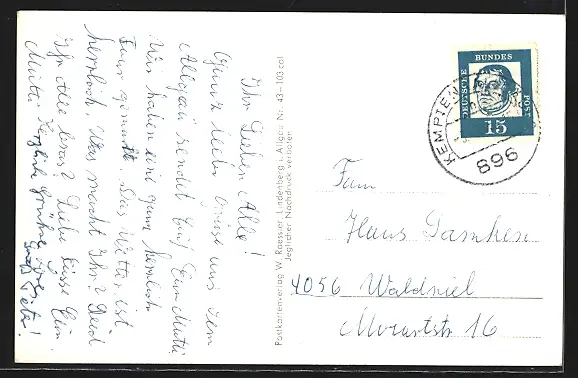 Ihr Lieben Alle!
Ganz liebe Grüße aus dem
Allgäu sendet Euch Eure Mutti
Wir haben eine ganz herrliche
Tour gemacht. Das Wetter ist
herrlich. Was macht Ihr? Seid
Ihr Alle brav? Liebe Küsse Eure
Mutti Herzliche Grüße
Peter!
Postkartenverlag W. Roesser, Lindenberg i. Allgäu Nr. 43-103 col
Jeglicher Nachdruck verboten
DEUTSCHE BUNDESPOST
15
KEMPTEN
896
Fam
Hans
4056 Waldniel
Mozartstr 16